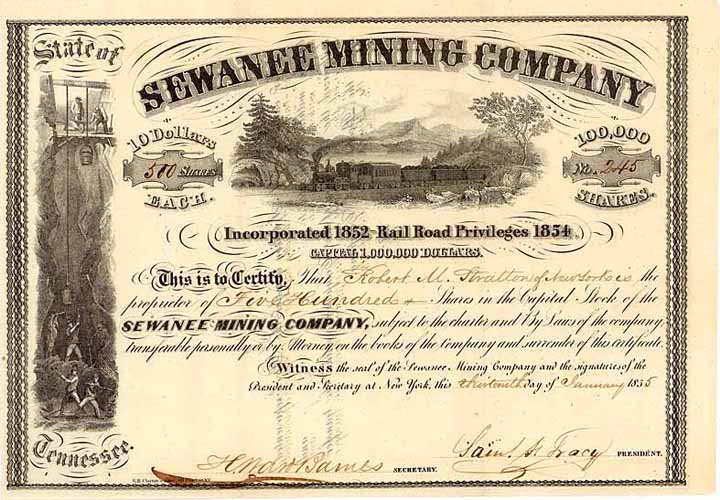 State of
SEWANEE MINING COMPANY
10 Dollars
500 SHARES
EACH.
100,000
No. 245
SHARES.
Incorporated 1852 Rail Road Privileges 1854.
CAPITAL 1,000,000 DOLLARS.
This is to Certify, That Robert M. Stratton of New York is the
proprietor of Five Hundred Shares in the Capital Stock of the
SEWANEE MINING COMPANY, subject to the charter and By Laws of the company,
transferable personally or by Attorney on the books of the Company and surrender of this certificate.
Witness the seal of the Sewanee Mining Company and the signatures of the
President and Secretary at New York, this thirteenth day of January 1855
Tennessee.
Saml. F. Tracy PRESIDENT.
Barnes SECRETARY.